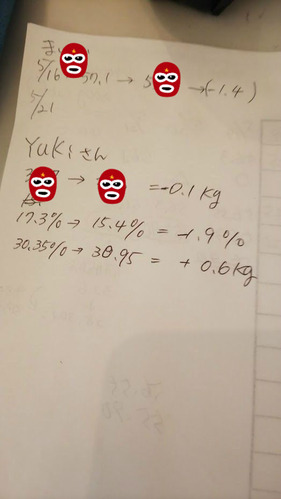 5/16 57.1 → 5 →(-1.4)
5/21
Yukiさん
→ =-0.1kg
17.3%→ 15.4% = -1.9%
30.35%→ 30.95 = +0.6kg